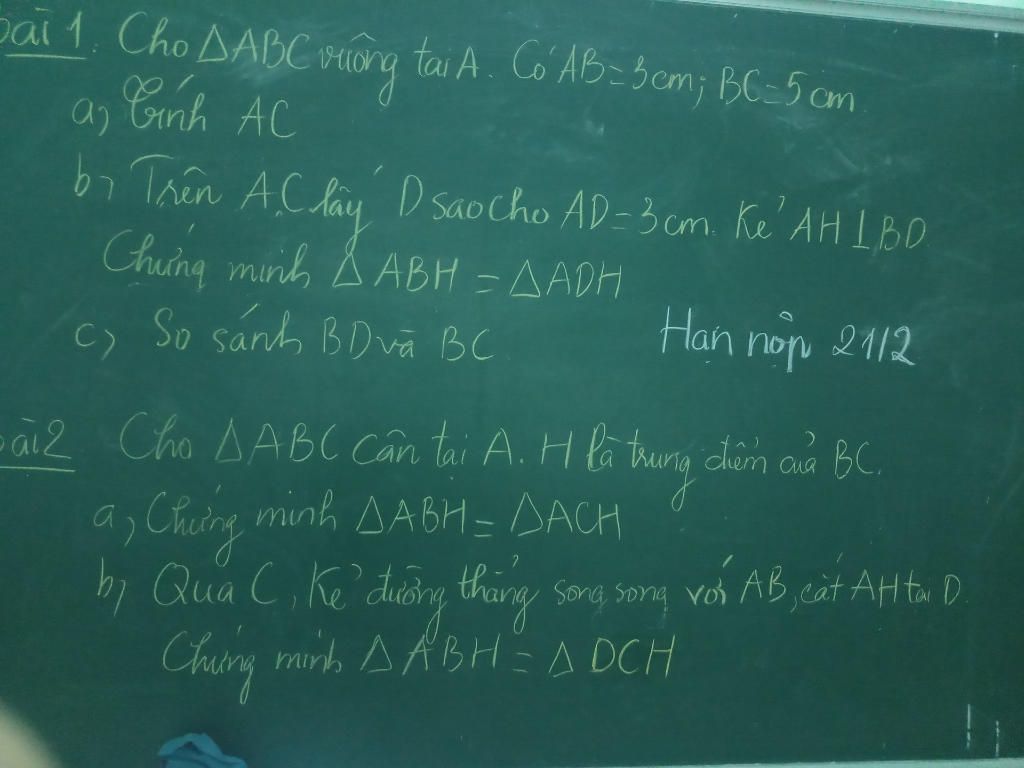 bài 1. Cho △ABC vuông tại A. Có AB=3cm; BC=5cm
a, Tính AC
b, Trên AC lấy D sao cho AD=3cm. Kẻ AH⊥BD
Chứng minh △ABH = △ADH
c, So sánh BD và BC
Hạn nộp 21/2
bài 2 Cho △ABC cân tại A. H là trung điểm của BC.
a, Chứng minh △ABH = △ACH
b, Qua C, Kẻ đường thẳng song song với AB, cắt AH tại D
Chứng minh △ABH = △DCH